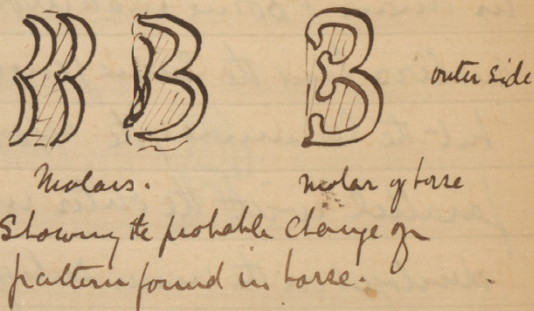 outer side
Molars.
molar of horse
Showing the probable change of
pattern found in horse.